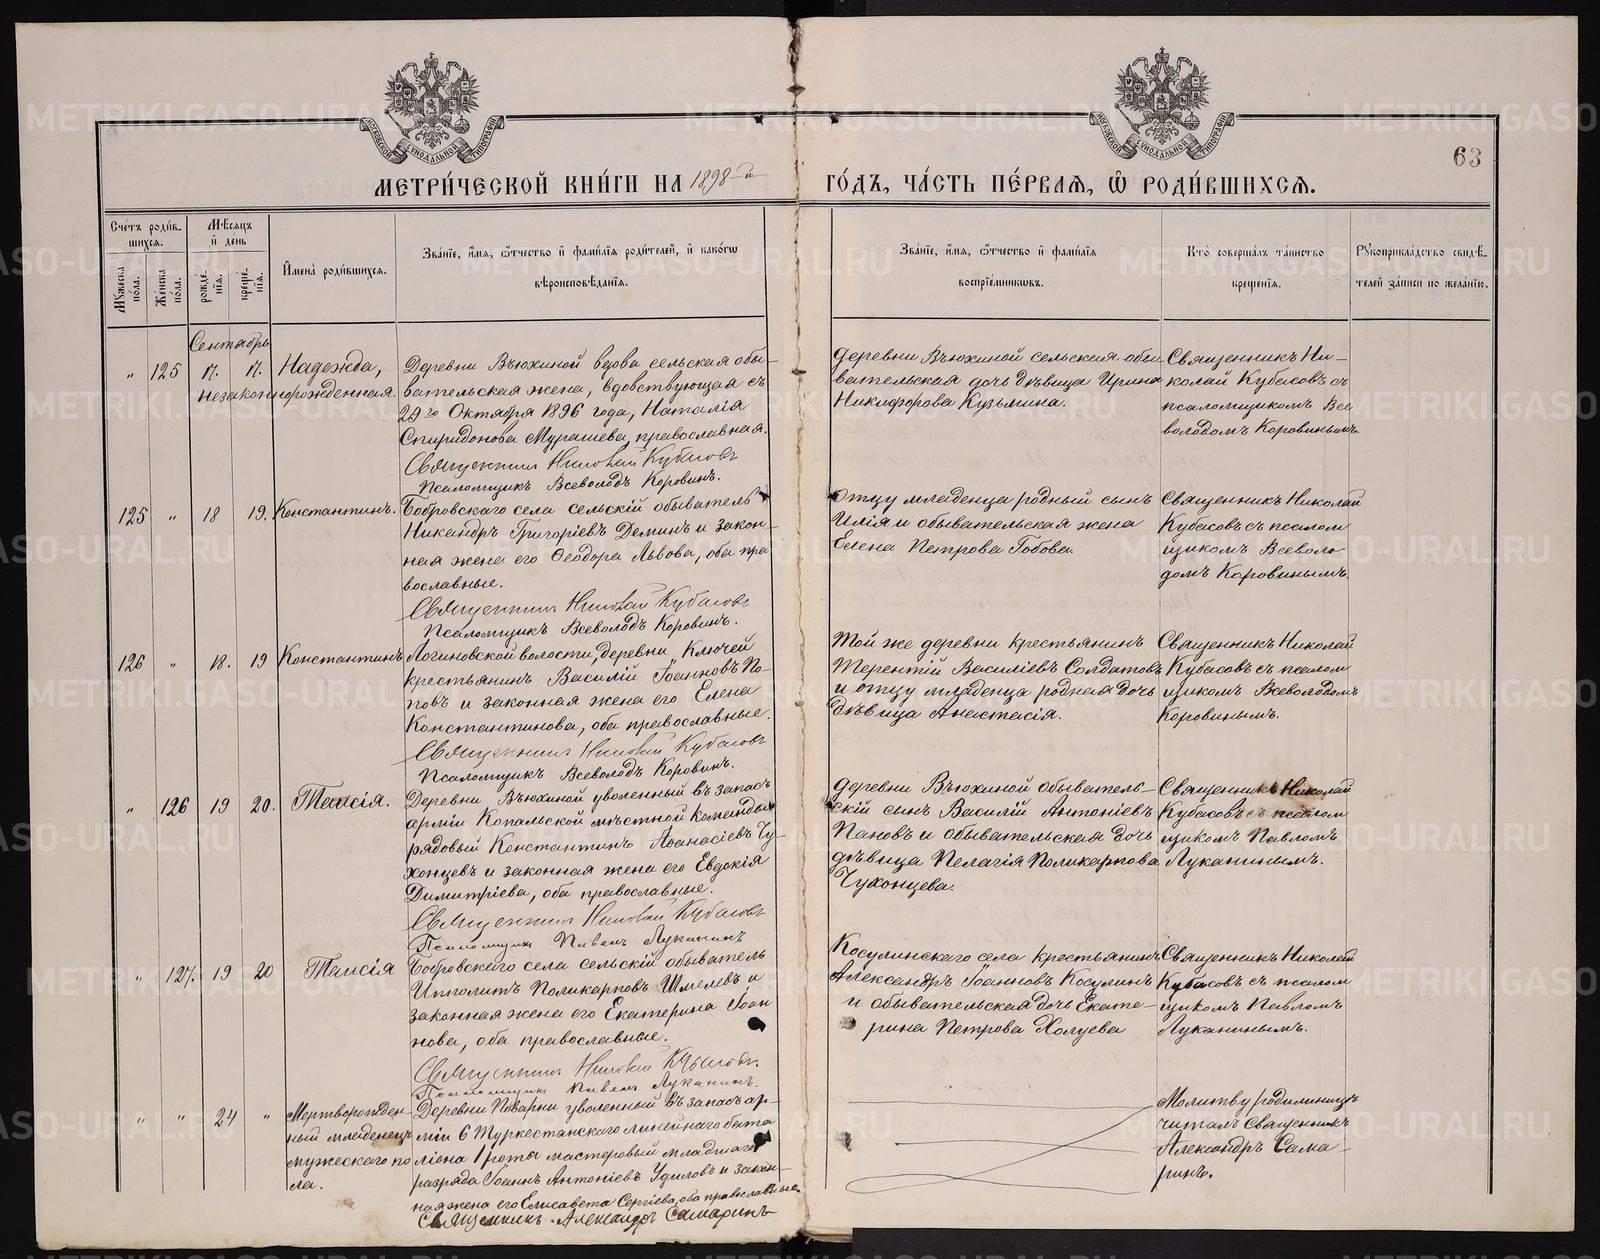 63
МЕТРИ́ЧЕСКОЙ КНИ́ГИ НА 1898-й ГО́ДЪ, ЧА́СТЬ ПЕ́РВАЯ, Ѿ РОДИ́ВШИХСЯ.
Сче́тъ роди́в-
шихся.
Му́жеска пола.
Же́нска пола.
Мѣ́сяцъ
и́ день
рожде́-
нїя.
креще́-
нїя.
И҆мена̀ роди́вшихся.
Зва́нїе, и҆́мя, ѻ҆́тчество и҆ фами́лїя роди́телей, и҆ како́гѡ
вѣроисповѣ́данїя.
Зва́нїе, и҆́мя, ѻ҆́тчество и҆ фами́лїя
воспрїе́мникѡвъ.
Кто̀ соверша́лъ та́инство
креще́нїя.
Рꙋкоприкла́дство свидѣ́-
телей за́писи по жела́нїю.
Сентябрь
" 125 17. 17. Надежда,
незаконнорожденная.
Деревни Вьюхиной вдова сельская обы-
вательская жена, вдовствующая съ
29го Октября 1896 года, Наталія
Спиридонова Мурашева, православная.
Священникъ Николай Кубасовъ
Псаломщикъ Всеволодъ Коровинъ.
Деревни Вьюхиной сельская обы-
вательская дочь дѣвица Ирина
Никифорова Кузьмина.
Священникъ Ни-
колай Кубасовъ съ
псаломщикомъ Все
володомъ Коровинымъ.
125 " 18 19. Константинъ.
Бобровскаго села сельскій обыватель
Никандръ Григоріевъ Деминъ и закон-
ная жена его Ѳеодора Львова, оба пра
вославные.
Священникъ Николай Кубасовъ
Псаломщикъ Всеволодъ Коровинъ.
Отцу младенца родный сынъ
Илія и обывательская жена
Елена Петрова Гобова.
Священникъ Николай
Кубасовъ съ псалом
щикомъ Всеволо
домъ Коровинымъ.
126 " 18. 19 Константинъ
Логиновской волости, деревни Ключей
крестьянинъ Василій Іоанновъ По-
повъ и законная жена его Елена
Константинова, оба православные.
Священникъ Николай Кубасовъ
Псаломщикъ Всеволодъ Коровинъ.
Той же деревни крестьянинъ
Терентій Василіевъ Солдатовъ
и отцу младенца родная дочь
дѣвица Анастасія.
Священникъ Николай
Кубасовъ съ псалом
щикомъ Всеволодомъ
Коровинымъ.
" 126 19 20. Таисія.
Деревни Вьюхиной уволенный въ запасъ
арміи Копальской мѣстной команды
рядовый Константинъ Аѳанасіевъ Чу-
хонцевъ и законная жена его Евдокія
Димитріева, оба православные.
Священникъ Николай Кубасовъ
Псаломщикъ Павелъ Луканинъ
Деревни Вьюхиной обыватель-
скій сынъ Василій Антоніевъ
Пановъ и обывательская дочь
дѣвица Пелагія Поликарпова
Чухонцева.
Священникъ Николай
Кубасовъ съ псалом
щикомъ Павломъ
Луканинымъ.
" 127. 19 20 Таисія
Бобровскаго села сельскій обыватель
Ипполитъ Поликарповъ Шмелевъ и
законная жена его Екатерина Іоан
нова, оба православные.
Священникъ Николай Кубасовъ.
Псаломщикъ Павелъ Луканинъ.
Косулинскаго села крестьянинъ
Александръ Іоанновъ Косулинъ
и обывательская дочь Екате-
рина Петрова Холуева
Священникъ Николай
Кубасовъ съ псалом
щикомъ Павломъ
Луканинымъ.
" " 24 " Мертворожден-
ный младенецъ
мужескаго по
ла.
Деревни Поварни уволенный въ запасъ ар-
міи 6 Туркестанскаго линейнаго бата
ліона 1 роты мастеровый младшаго
разряда Іоаннъ Антоніевъ Удиловъ и закон-
ная жена его Елисавета Сергіева, оба православные.
Священникъ Александръ Самаринъ
Молитву родильницѣ
читалъ Священникъ
Александръ Сама-
ринъ.